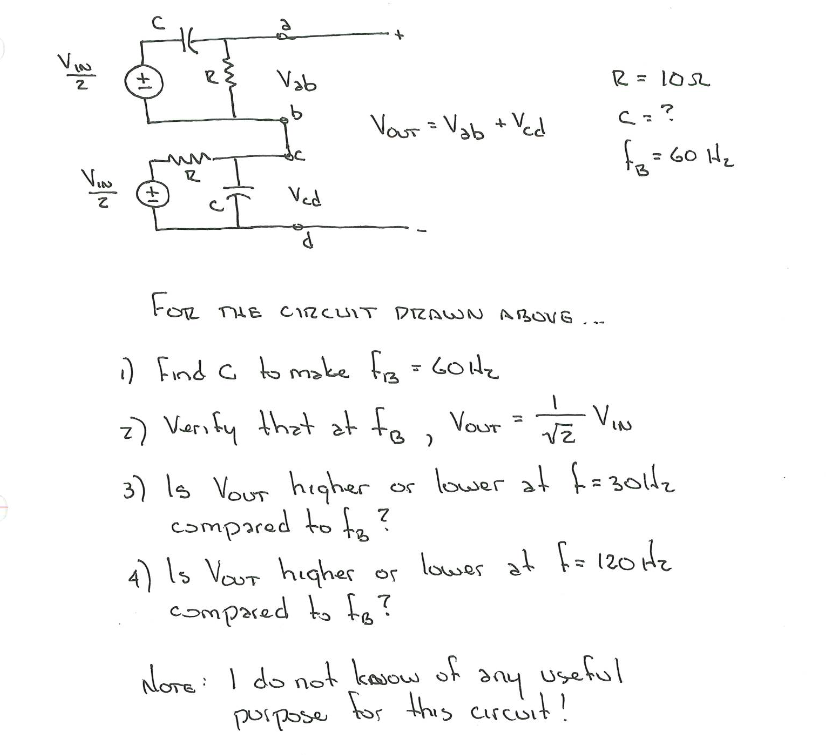 C
a
+
V_IN/2
±
R
V_ab
R = 10Ω
b
C = ?
V_OUT = V_ab + V_cd
f_B = 60 Hz
c
R
V_IN/2
±
C
V_cd
-
d
FOR THE CIRCUIT DRAWN ABOVE...
1) Find C to make f_B = 60Hz
2) Verify that at f_B, V_OUT = 1/√2 V_IN
3) Is V_OUT higher or lower at f = 30Hz
compared to f_B?
4) Is V_OUT higher or lower at f = 120 Hz
compared to f_B?
NOTE: I do not know of any useful
purpose for this circuit!